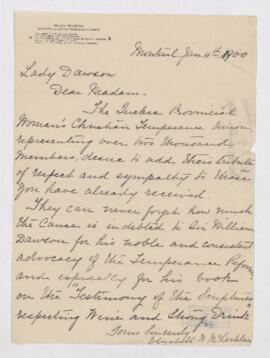 Montreal Jan 4th 1900
Lady Dawson
Dear Madam.
The Quebec Provincial
Woman's Christian Temperance Union
representing over two thousand
Members, desire to add their tribute
of respect and sympathy to those
you have already received.
They can never forget how much
the Cause is indebted to Sir William
Dawson for his noble and consistent
advocacy of the Temperance Reform
and especially for his book
on the "Testimony of the Scriptures
respecting Wine and Strong Drink"
Yours Sincerely